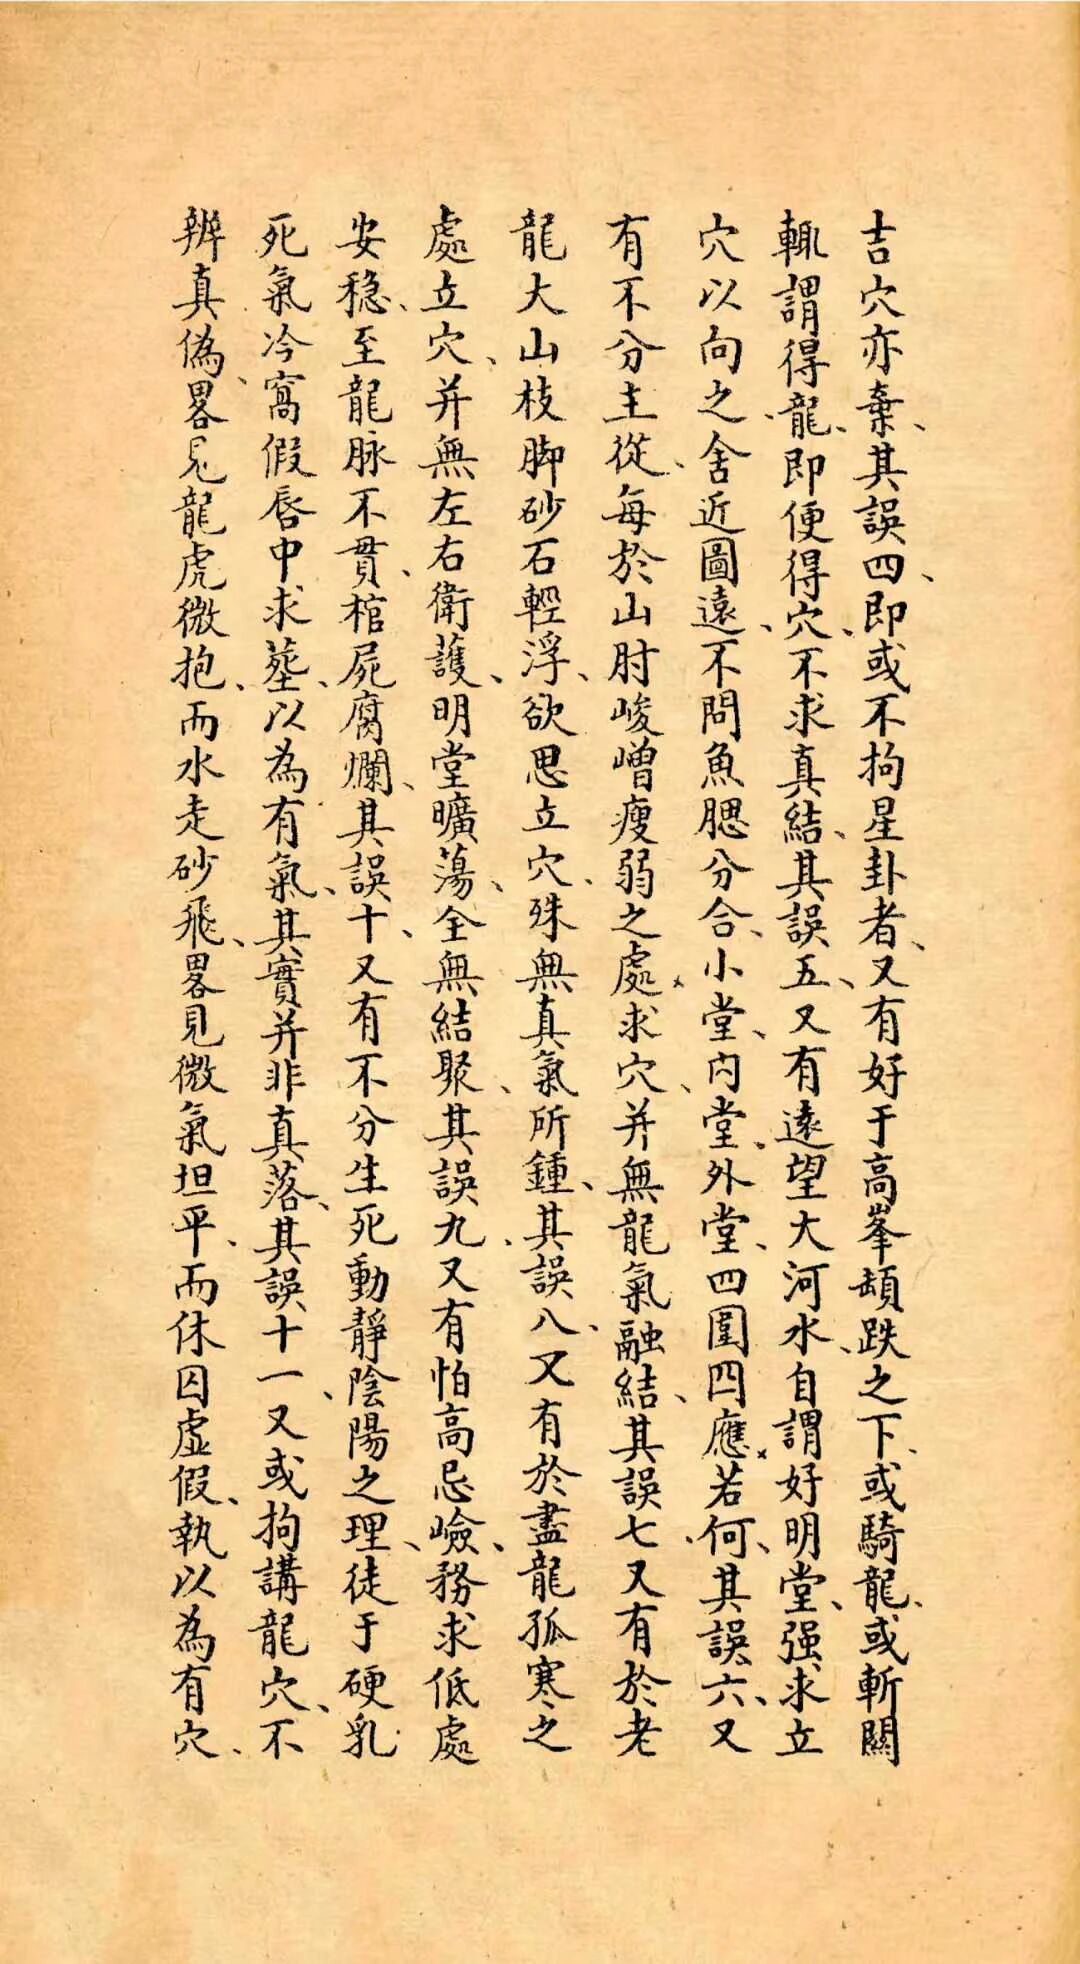 吉穴亦棄、其誤四、即或不拘星卦者、又有好于高峯頓跌之下、或騎龍、或斬關
輒謂得龍、即便得穴、不求真結、其誤五、又有遠望大河水、自謂好明堂、强求立
穴以向之、舍近圖遠、不問魚腮分合、小堂、內堂、外堂、四圍四應、若何、其誤六、又
有不分主從、每於山肘峻嶒瘦弱之處、求穴、并無龍氣融結、其誤七、又有於老
龍大山枝脚砂石輕浮、欲思立穴、殊無真氣所鍾、其誤八、又有於盡龍孤寒之
處立穴、并無左右衛護、明堂曠蕩、全無結聚、其誤九、又有怕高忌嶮、務求低處
安穏、至龍脉不貫、棺屍腐爛、其誤十、又有不分生死動靜陰陽之理、徒于硬乳
死氣冷窩假唇中求塟、以為有氣、其實并非真落、其誤十一、又或拘講龍穴、不
辨真偽、畧見龍虎微抱、而水走砂飛、畧見微氣坦平、而休囚虛假、執以為有穴、